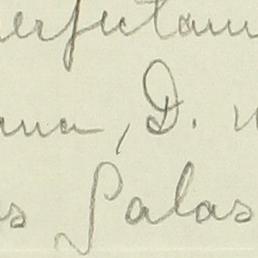 perfectam
ana, D.
s Salas